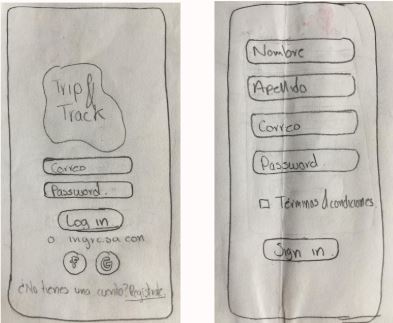 Trip &
Track
Correo
Password.
Log in
o ingresa con
f G
¿No tienes una cuenta? Regístrate.
Nombre
Apellido
Correo
Password.
Términos & condiciones
Sign in.